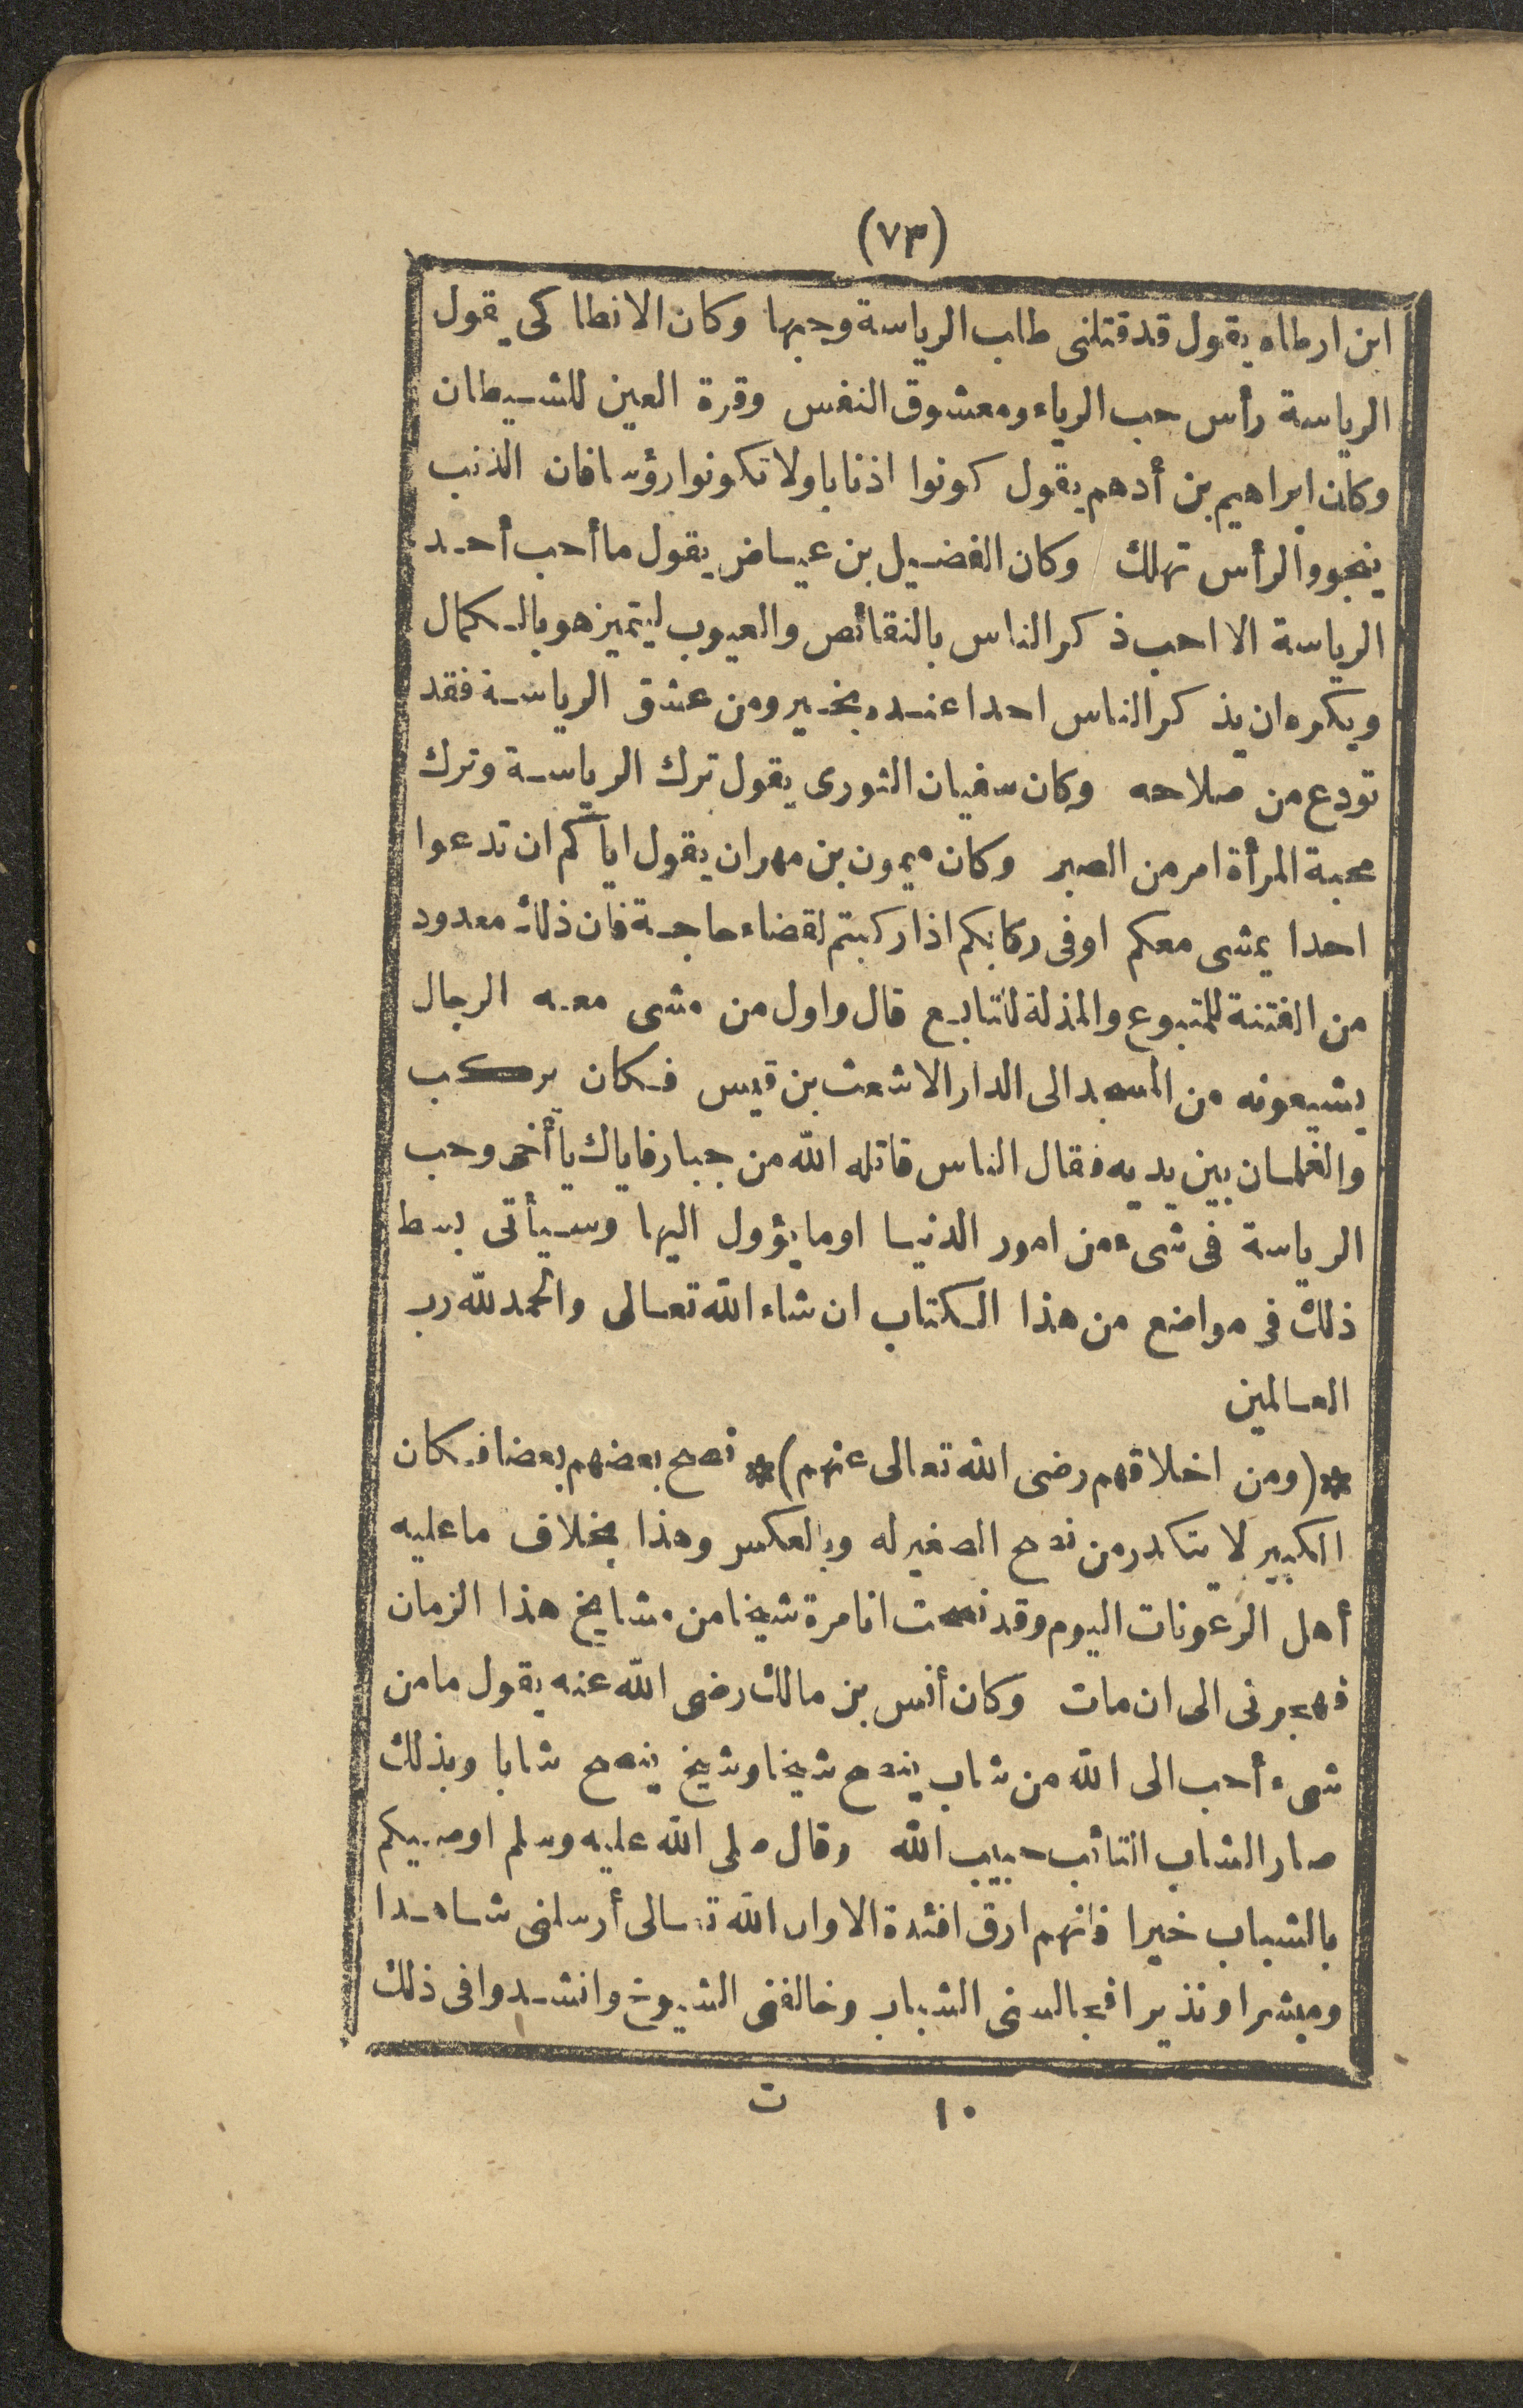 (٧٣)
ابن ارطاه يقول قد قتلنى طلب الرياسة وحبها وكان الانطاكى يقول
الرياسة رأس حب الرياء ومعشوق النفس وقرة العين للشيطان
وكان ابراهيم بن أدهم يقول كونوا اذنابا ولا تكونوا رؤسا فان الذنب
ينجو والرأس تهلك وكان الفضيل بن عياض يقول ما أحب أحد
الرياسة الا احب ذكر الناس بالنقائص والعيوب ليتميز هو بالكمال
ويكره ان يذكر الناس احدا عنده بخير ومن عشق الرياسة فقد
تودع من صلاحه وكان سفيان الثورى يقول ترك الرياسة وترك
محبة المرأة امر من الصبر وكان ميمون بن مهران يقول اياكم ان تدعوا
احدا يمشى معكم او فى ركابكم اذا ركبتم لقضاء حاجة فان ذلك معدود
من الفتنة للمتبوع والمذلة للتابع قال واول من مشى معه الرجال
يشيعونه من المسجد الى الدار الاشعث بن قيس فكان يركب
والغلمان بين يديه فقال الناس قاتله الله من جبار فاياك يا أخى وحب
الرياسة فى شىء من امور الدنيا او ما يؤول اليها وسيأتى بسط
ذلك فى مواضع من هذا الكتاب ان شاء الله تعالى والحمد لله رب
العالمين
*(ومن اخلاقهم رضى الله تعالى عنهم)* نصح بعضهم بعضا فكان
الكبير لا يتكدر من نصح الصغير له وبالعكس وهذا بخلاف ما عليه
أهل الرعونات اليوم وقد نصحت انا مرة شيخا من مشايخ هذا الزمان
فهجرنى الى ان مات وكان أنس بن مالك رضى الله عنه يقول ما من
شىء أحب الى الله من شاب ينصح شيخا وشيخ ينصح شابا وبذلك
صار الشاب التائب حبيب الله وقال صلى الله عليه وسلم اوصيكم
بالشباب خيرا فانهم ارق افئدة الا وان الله تعالى أرسلنى شاهدا
ومبشرا ونذيرا فجالسنى الشباب وخالفنى الشيوخ وانشدوا فى ذلك
١٠ ت